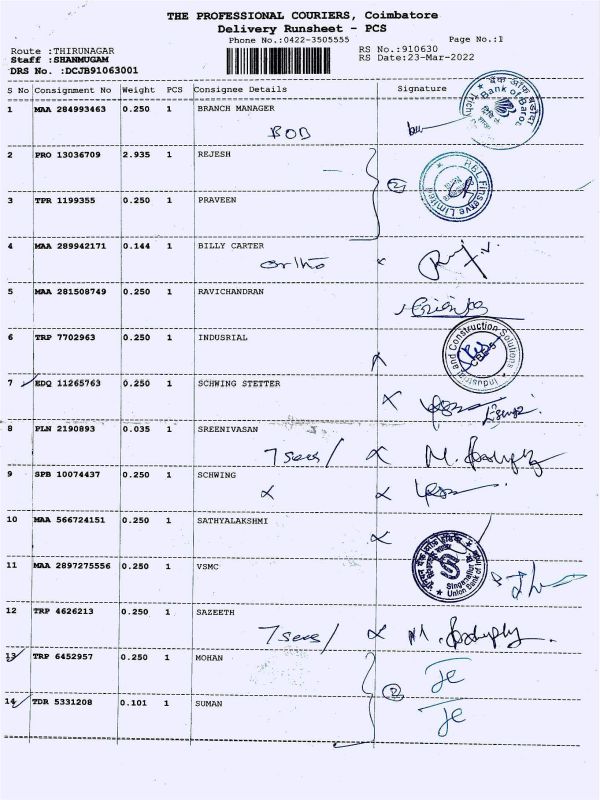 THE PROFESSIONAL COURIERS, Coimbatore
Delivery Runsheet - PCS
Phone No.:0422-3505555 Page No.:1
Route :THIRUNAGAR RS No.:910630
Staff :SHANMUGAM RS Date:23-Mar-2022
DRS No. :DCJB91063001
S No Consignment No Weight PCS Consignee Details Signature
1 MAA 284993463 0.250 1 BRANCH MANAGER
BOB
2 PRO 13036709 2.935 1 REJESH
2
3 TPR 1199355 0.250 1 PRAVEEN
4 MAA 289942171 0.144 1 BILLY CARTER
ortho
5 MAA 281508749 0.250 1 RAVICHANDRAN
6 TRP 7702963 0.250 1 INDUSRIAL
Industrial and Construction Solutions
7 EDQ 11265763 0.250 1 SCHWING STETTER
8 PLN 2190893 0.035 1 SREENIVASAN
7 seas/
9 SPB 10074437 0.250 1 SCHWING
10 MAA 566724151 0.250 1 SATHYALAKSHMI
11 MAA 2897275556 0.250 1 VSMC
12 TRP 4626213 0.250 1 SAZEETH
7 seas/
13 TRP 6452957 0.250 1 MOHAN
2
14 TDR 5331208 0.101 1 SUMAN